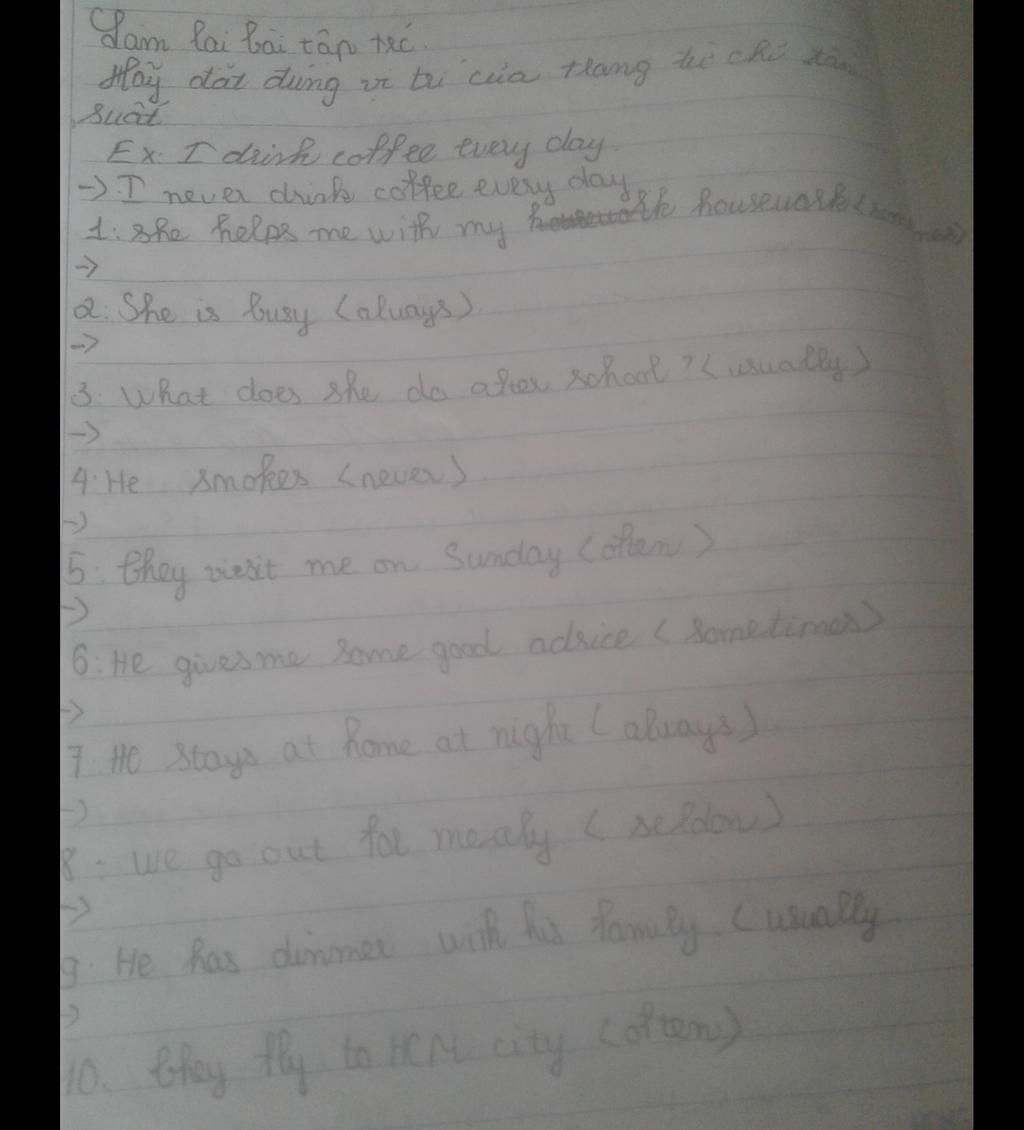 Làm lại bài tập trc.
Hãy đặt đúng vị trí của trạng từ chỉ tần
suất
Ex: I drink coffee every day.
-> I never drink coffee every day
1: she helps me with my housework housework (sometimes)
->
2: She is busy (always)
->
3: What does she do after school? (usually)
->
4: He smokes (never)
->
5: they visit me on Sunday (often)
->
6: He gives me some good advice (sometimes)
->
7 He stays at home at night (always)
->
8: We go out for mealy (seldon)
->
9: He has dinner with his family. (usually
->
10. they fly to HCM city (often)